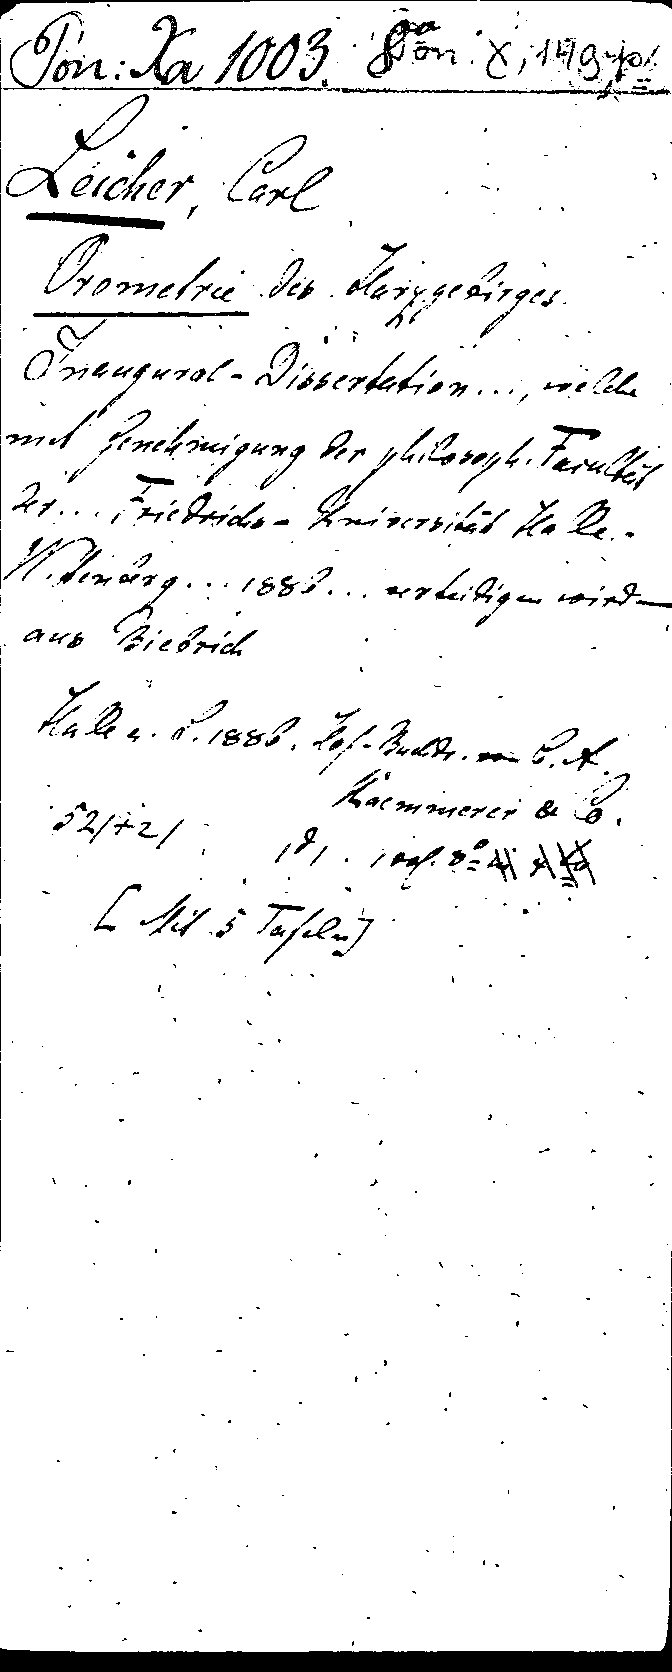 Pön: Xa 1003.
Leicher, Carl
Orometrie des Harzgebirges
Inaugural-Dissertation..., welche
mit Genehmigung der philosoph. Facultät
der... Friedrichs-Universität Halle-
Wittenberg... 1886... verteidigen wird
aus Biebrich
Halle a. S. 1886. Hof-Buchdr. von C. A.
Kaemmerer & Co.
52/+2/
[Mit 5 Tafeln]